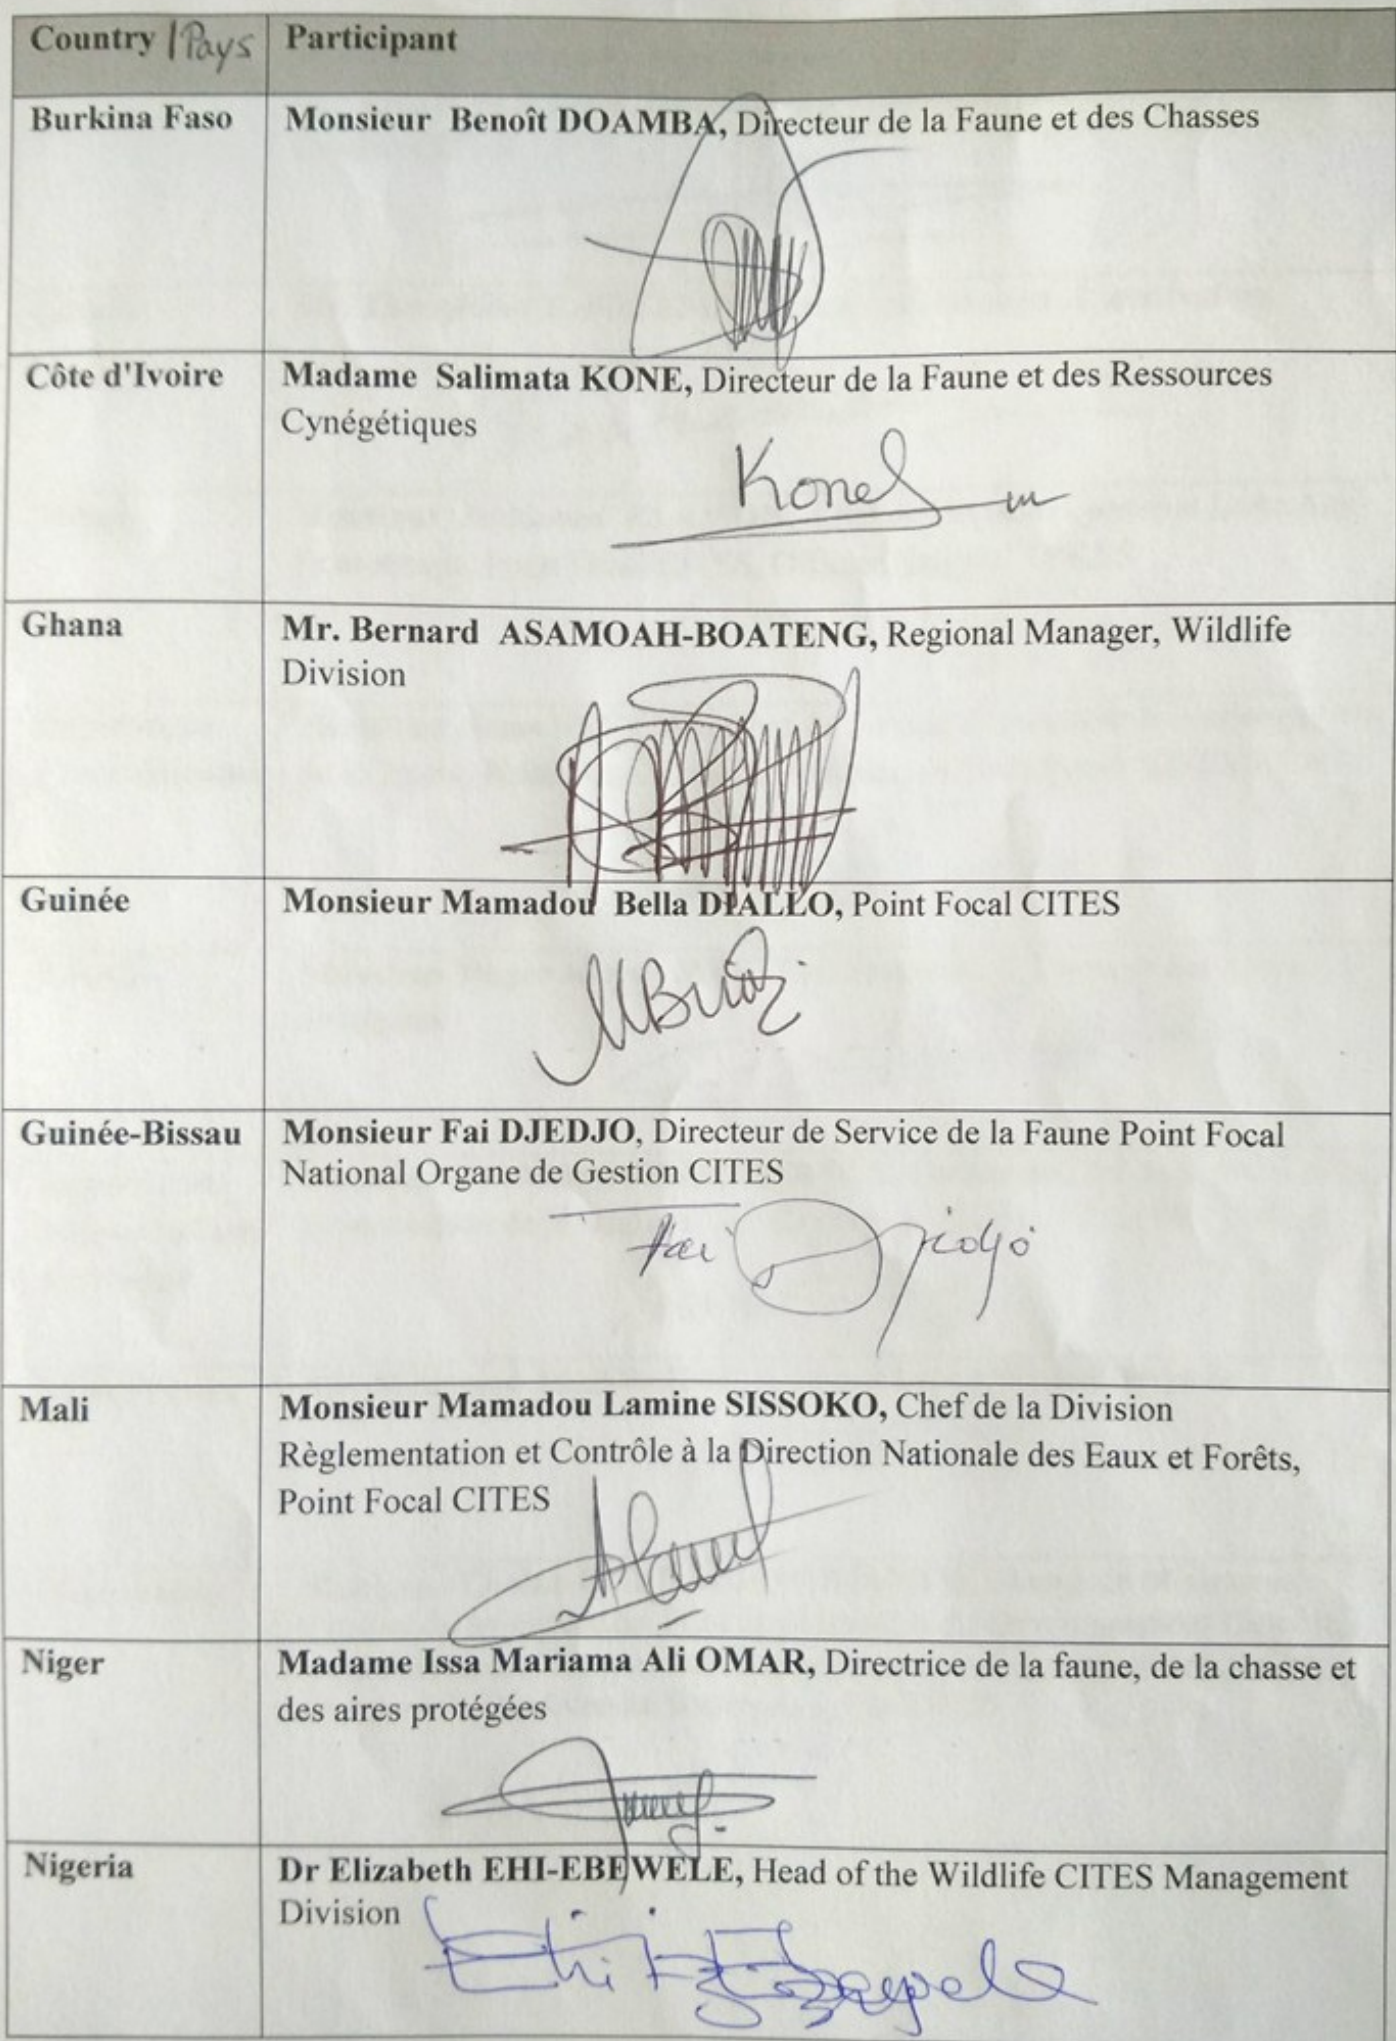 Country / Pays Participant
Burkina Faso Monsieur Benoît DOAMBA, Directeur de la Faune et des Chasses
Côte d'Ivoire Madame Salimata KONE, Directeur de la Faune et des Ressources
Cynégétiques
Kone
Ghana Mr. Bernard ASAMOAH-BOATENG, Regional Manager, Wildlife
Division
Guinée Monsieur Mamadou Bella DIALLO, Point Focal CITES
Guinée-Bissau Monsieur Fai DJEDJO, Directeur de Service de la Faune Point Focal
National Organe de Gestion CITES
Fai Djedjo
Mali Monsieur Mamadou Lamine SISSOKO, Chef de la Division
Règlementation et Contrôle à la Direction Nationale des Eaux et Forêts,
Point Focal CITES
Niger Madame Issa Mariama Ali OMAR, Directrice de la faune, de la chasse et
des aires protégées
Nigeria Dr Elizabeth EHI-EBEWELE, Head of the Wildlife CITES Management
Division